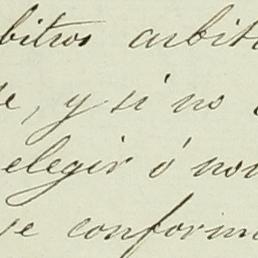 bitros arbit
e, y si no
elegir ó no
se conform